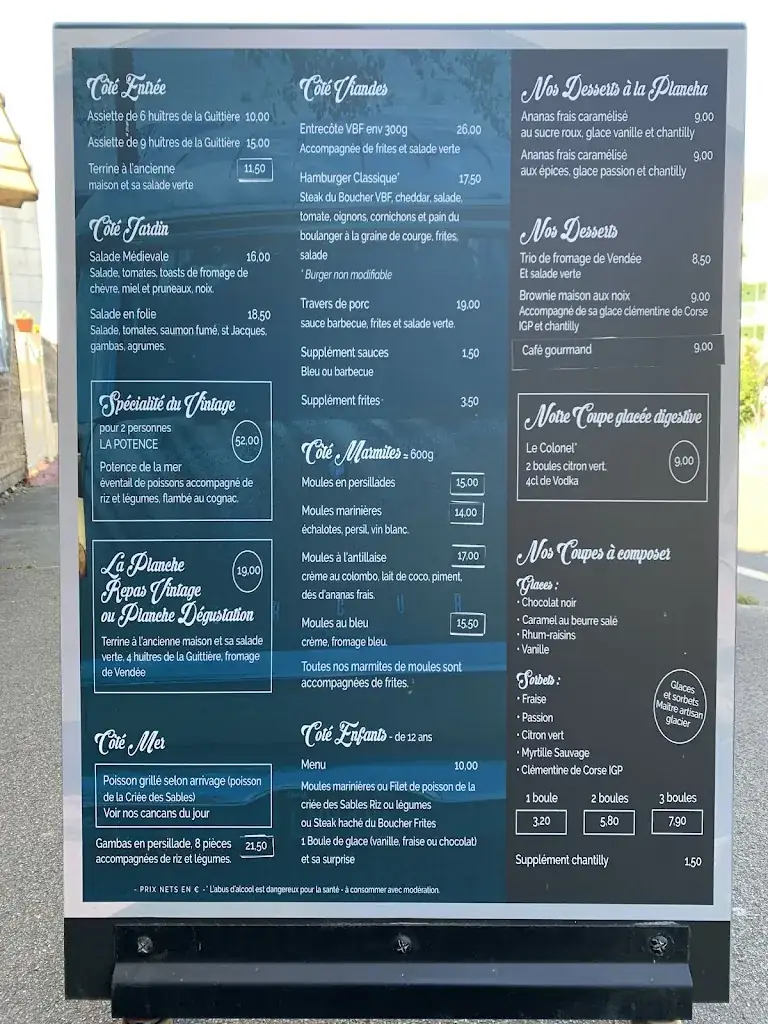 Côté Entrée
Assiette de 6 huîtres de la Guittière 10,00
Assiette de 9 huîtres de la Guittière 15,00
Terrine à l'ancienne 11,50
maison et sa salade verte
Côté Jardin
Salade Médievale 16,00
Salade, tomates, toasts de fromage de
chèvre, miel et pruneaux, noix.
Salade en folie 18,50
Salade, tomates, saumon fumé, st Jacques,
gambas, agrumes.
Spécialité du Vintage
pour 2 personnes
LA POTENCE 52,00
Potence de la mer
éventail de poissons accompagné de
riz et légumes, flambé au cognac.
La Planche
Repas Vintage
ou Planche Dégustation
19,00
Terrine à l'ancienne maison et sa salade
verte, 4 huîtres de la Guittière, fromage
de Vendée
Côté Mer
Poisson grillé selon arrivage (poisson
de la Criée des Sables)
Voir nos cancans du jour
Gambas en persillade, 8 pièces 21,50
accompagnées de riz et légumes.
Côté Viandes
Entrecôte VBF env 300g 26,00
Accompagnée de frites et salade verte
Hamburger Classique* 17,50
Steak du Boucher VBF, cheddar, salade,
tomate, oignons, cornichons et pain du
boulanger à la graine de courge, frites,
salade
* Burger non modifiable
Travers de porc 19,00
sauce barbecue, frites et salade verte.
Supplément sauces 1,50
Bleu ou barbecue
Supplément frites 3,50
Côté Marmites ≃ 600g
Moules en persillades 15,00
Moules marinières 14,00
échalotes, persil, vin blanc.
Moules à l'antillaise 17,00
crème au colombo, lait de coco, piment,
dés d'ananas frais.
Moules au bleu 15,50
crème, fromage bleu.
Toutes nos marmites de moules sont
accompagnées de frites.
Côté Enfants - de 12 ans
Menu 10,00
Moules marinières ou Filet de poisson de la
criée des Sables Riz ou légumes
ou Steak haché du Boucher Frites
1 Boule de glace (vanille, fraise ou chocolat)
et sa surprise
Nos Desserts à la Plancha
Ananas frais caramélisé 9,00
au sucre roux, glace vanille et chantilly
Ananas frais caramélisé 9,00
aux épices, glace passion et chantilly
Nos Desserts
Trio de fromage de Vendée 8,50
Et salade verte
Brownie maison aux noix 9,00
Accompagné de sa glace clémentine de Corse
IGP et chantilly
Café gourmand 9,00
Notre Coupe glacée digestive
Le Colonel* 9,00
2 boules citron vert,
4cl de Vodka
Nos Coupes à composer
Glaces :
• Chocolat noir
• Caramel au beurre salé
• Rhum-raisins
• Vanille
Sorbets :
• Fraise
• Passion
• Citron vert
• Myrtille Sauvage
• Clémentine de Corse IGP
Glaces
et sorbets
Maître artisan
glacier
1 boule 2 boules 3 boules
3,20 5,80 7,90
Supplément chantilly 1,50
- PRIX NETS EN € -* L'abus d'alcool est dangereux pour la santé - à consommer avec modération.